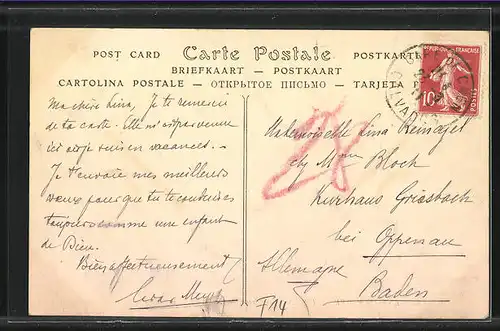 POST CARD Carte Postale POSTKARTE
BRIEFKAART — POSTKAART
CARTOLINA POSTALE — ОТКРЫТОЕ ПИСЬМО — TARJETA
Ma chère Lina, Je te remercie
de ta carte. Elle m'est parvenue
ici où je suis en vacances.
Je t'envoie mes meilleurs
vœux pour que tu te conduises
toujours comme une enfant
de Dieu.
Bien affectueusement
REPUBLIQUE FRANÇAISE
10
POSTES
CALVADOS
28
Mademoiselle Lina
chez Mme Bloch
Kurhaus Griesbach
bei Oppenau
Allemagne
Baden
F14